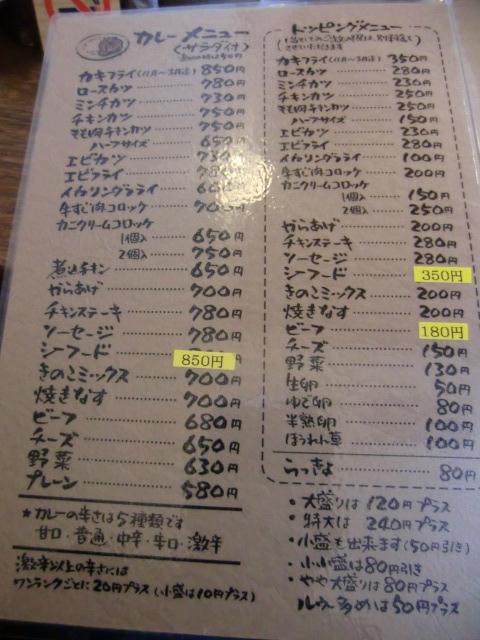 カレーメニュー
(サラダ付)
カキフライ(11月〜3月迄) 850円
ロースカツ 780円
ミンチカツ 730円
チキンカツ 750円
もも肉チキンカツ 750円
ハーフサイズ 650円
エビカツ 730円
エビフライ 780円
イカリングフライ 600円
牛すじ肉コロッケ 700円
カニクリームコロッケ
1個入 650円
2個入 750円
煮込チキン 650円
からあげ 700円
チキンステーキ 780円
ソーセージ 780円
シーフード 850円
きのこミックス 700円
焼きなす 700円
ビーフ 680円
チーズ 650円
野菜 630円
プレーン 580円
★カレーの辛さは5種類です
甘口・普通・中辛・辛口・激辛
激辛以上の辛さには
ワンランクごとに20円プラス(小盛は10円プラス)
トッピングメニュー
カキフライ(11月〜3月迄) 350円
ロースカツ 280円
ミンチカツ 230円
チキンカツ 250円
もも肉チキンカツ 250円
ハーフサイズ 150円
エビカツ 230円
エビフライ 280円
イカリングフライ 100円
牛すじ肉コロッケ 200円
カニクリームコロッケ
1個入 150円
2個入 250円
からあげ 200円
チキンステーキ 280円
ソーセージ 280円
シーフード 350円
きのこミックス 200円
焼きなす 200円
ビーフ 180円
チーズ 150円
野菜 130円
生卵 50円
ゆで卵 80円
半熟卵 100円
ほうれん草 100円
らっきょ 80円
・大盛りは120円プラス
・特大は240円プラス
・小盛も出来ます(50円引き)
・小小盛は80円引き
・やや大盛りは80円プラス
・ルウ多めは50円プラス